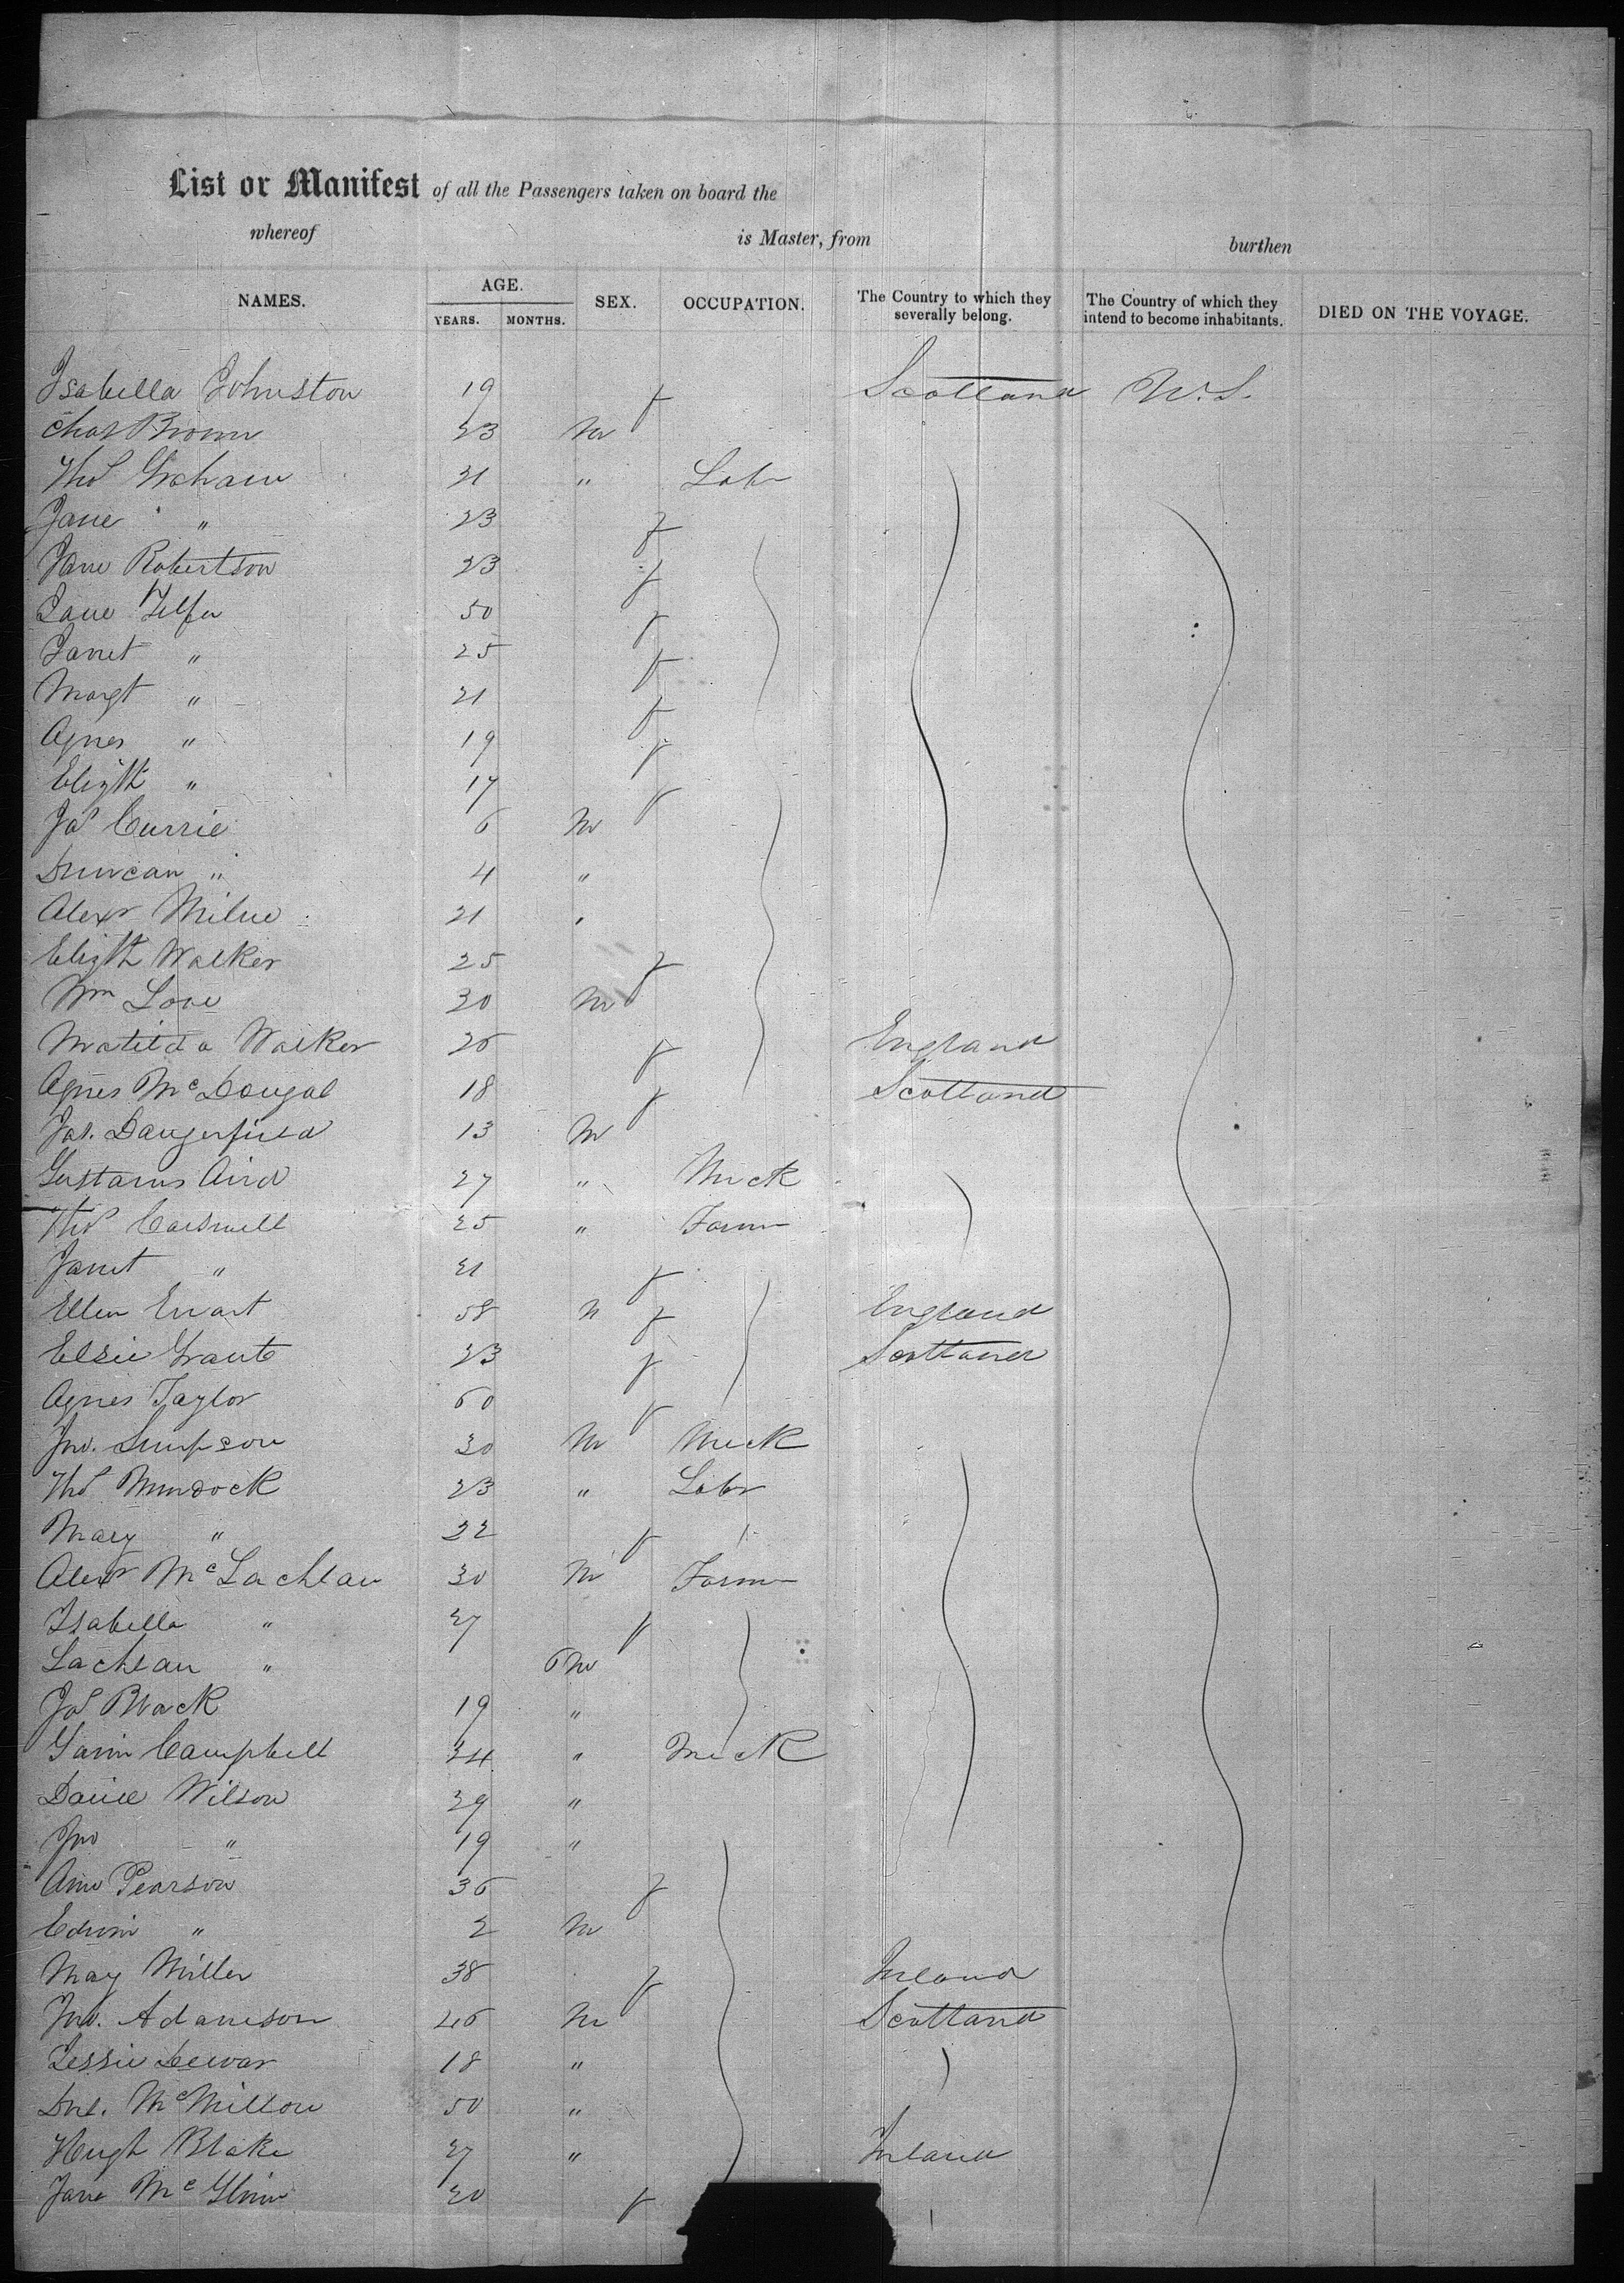 List or Manifest of all the Passengers taken on board the
whereof is Master, from burthen
NAMES. AGE. SEX. OCCUPATION. The Country to which they severally belong. The Country of which they intend to become inhabitants. DIED ON THE VOYAGE.
YEARS. MONTHS.
Isabella Johnston 19 f Scotland U.S.
Chas Brown 23 M
Thos Graham 21 " Labr
Jane " 23 f
Jane Robertson 23 f
Jane Telfer 50 f
Janet " 25 f
Margt " 21 f
Agnes " 19 f
Elizth " 17 f
Jas Currie 6 M
Duncan " 4 "
Alexr Milne 21 "
Elizth Walker 25 f
Wm Love 30 M
Matilda Walker 26 f England
Agnes McDougal 18 f Scotland
Jas. Dangerfield 13 M
Gustavus Aird 27 " Meck
Thos Carswell 25 " Farmr
Janet " 21 f
Ellen Ewart 58 f England
Elsie Grant 23 f Scotland
Agnes Taylor 60 f
Jno. Simpson 30 M Meck
Thos Murdock 23 " Labr
Mary " 22 f
Alexr McLachlan 30 M Farmr
Isabella " 27 f
Lachlan " 6 M
Jas Black 19 "
Gavin Campbell 34 " Meck
David Wilson 29 "
Jno " 19 "
Ann Pearson 36 f
Edwin " 2 M
May Miller 38 f Ireland
Jno. Adamson 46 M Scotland
Jessie Dewar 18 "
Dnl. McMillan 50 "
Hugh Blake 27 " Ireland
Jane McGlinn 20 f